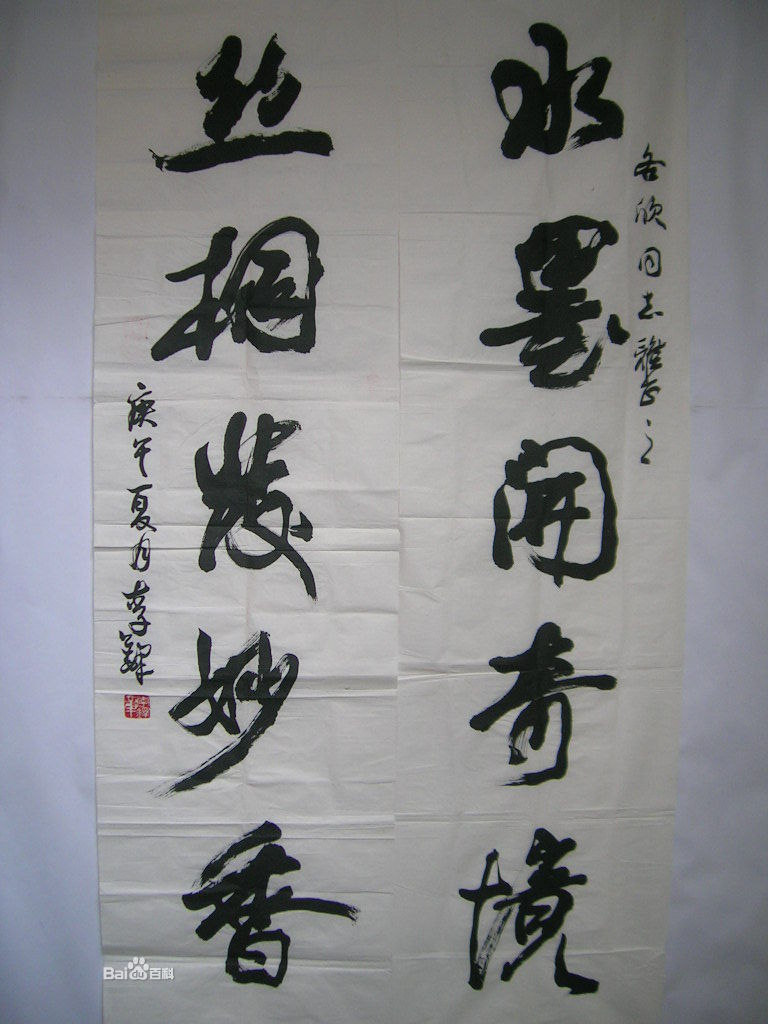 欣同志雅正之
水墨開奇境
丝桐發妙香
庚午夏月李鐸
Baidu百科